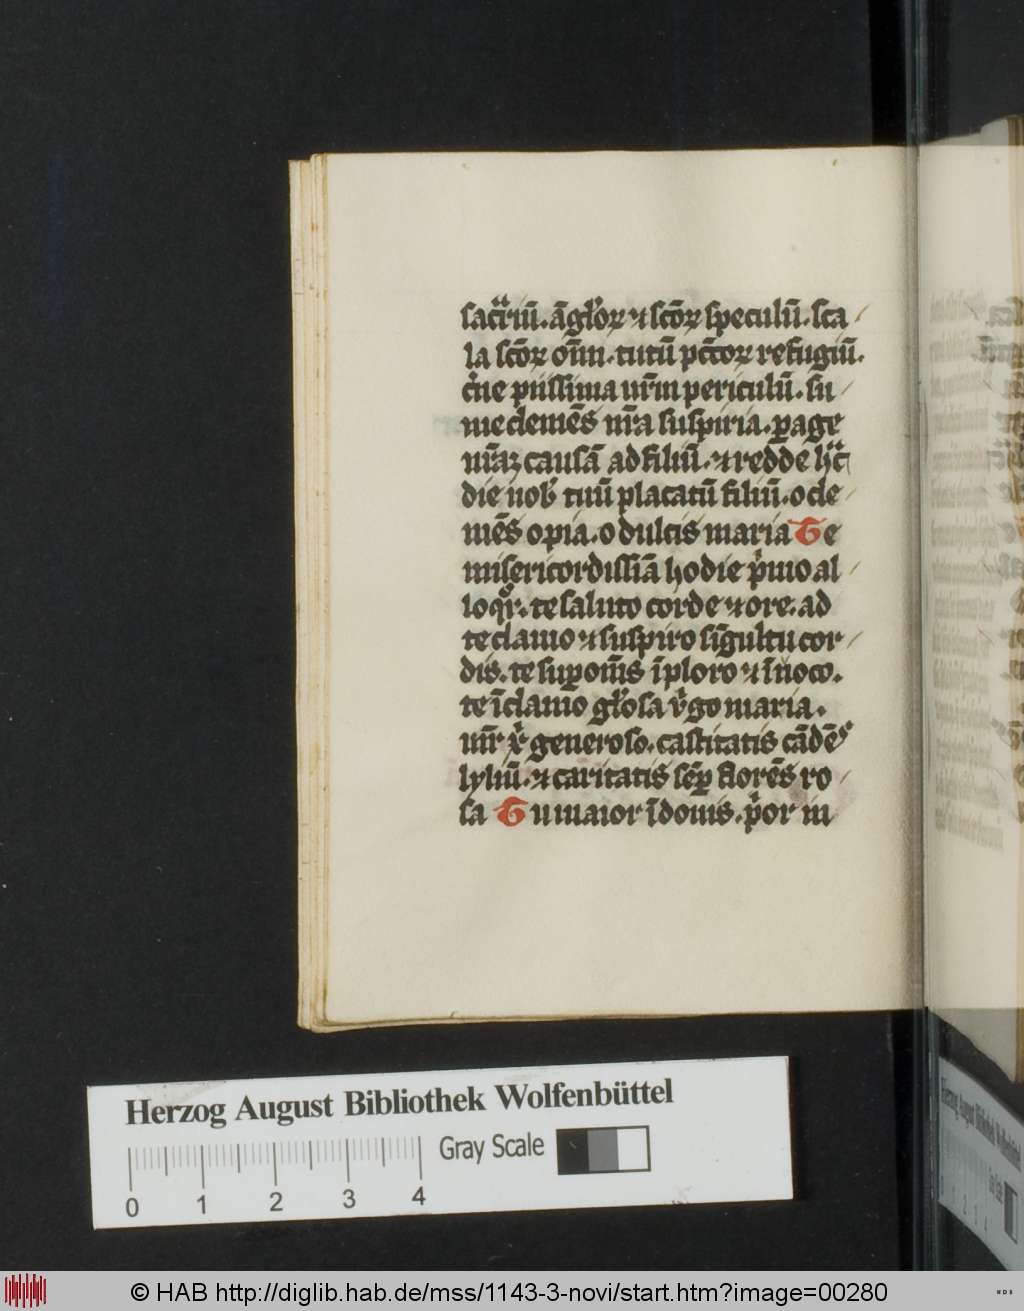 sacͥriū. āgl̓oꝝ ⁊ scōꝝ speculū. sca
la scōꝝ oīm. tutū pctōꝝ refugiū.
cͥne piissima nr̄m periculū. su
me clemēs nr̄a suspiria. ꝑage
nr̄aꝫ causā ad filiū. ⁊ redde
die nob̓ tuū placatū filiū. o cle
mēs o pia. o dulcis maria Te
misericordissīā hodie pͥmo al
loqr̄. te saluto corde ⁊ ore. ad
te clamo ⁊ suspiro sīgultu cor
dis. te suꝑ om̄s īploro ⁊ īuoco.
te īclamo gl̓osa vͥgo maria.
generoso. castitatis cādēs
lyliū. ⁊ caritatis sēꝑ florēs ro
sa Tu maior ī donis. pͥor in
Herzog August Bibliothek Wolfenbüttel
Gray Scale
0 1 2 3 4
© HAB http://diglib.hab.de/mss/1143-3-novi/start.htm?image=00280